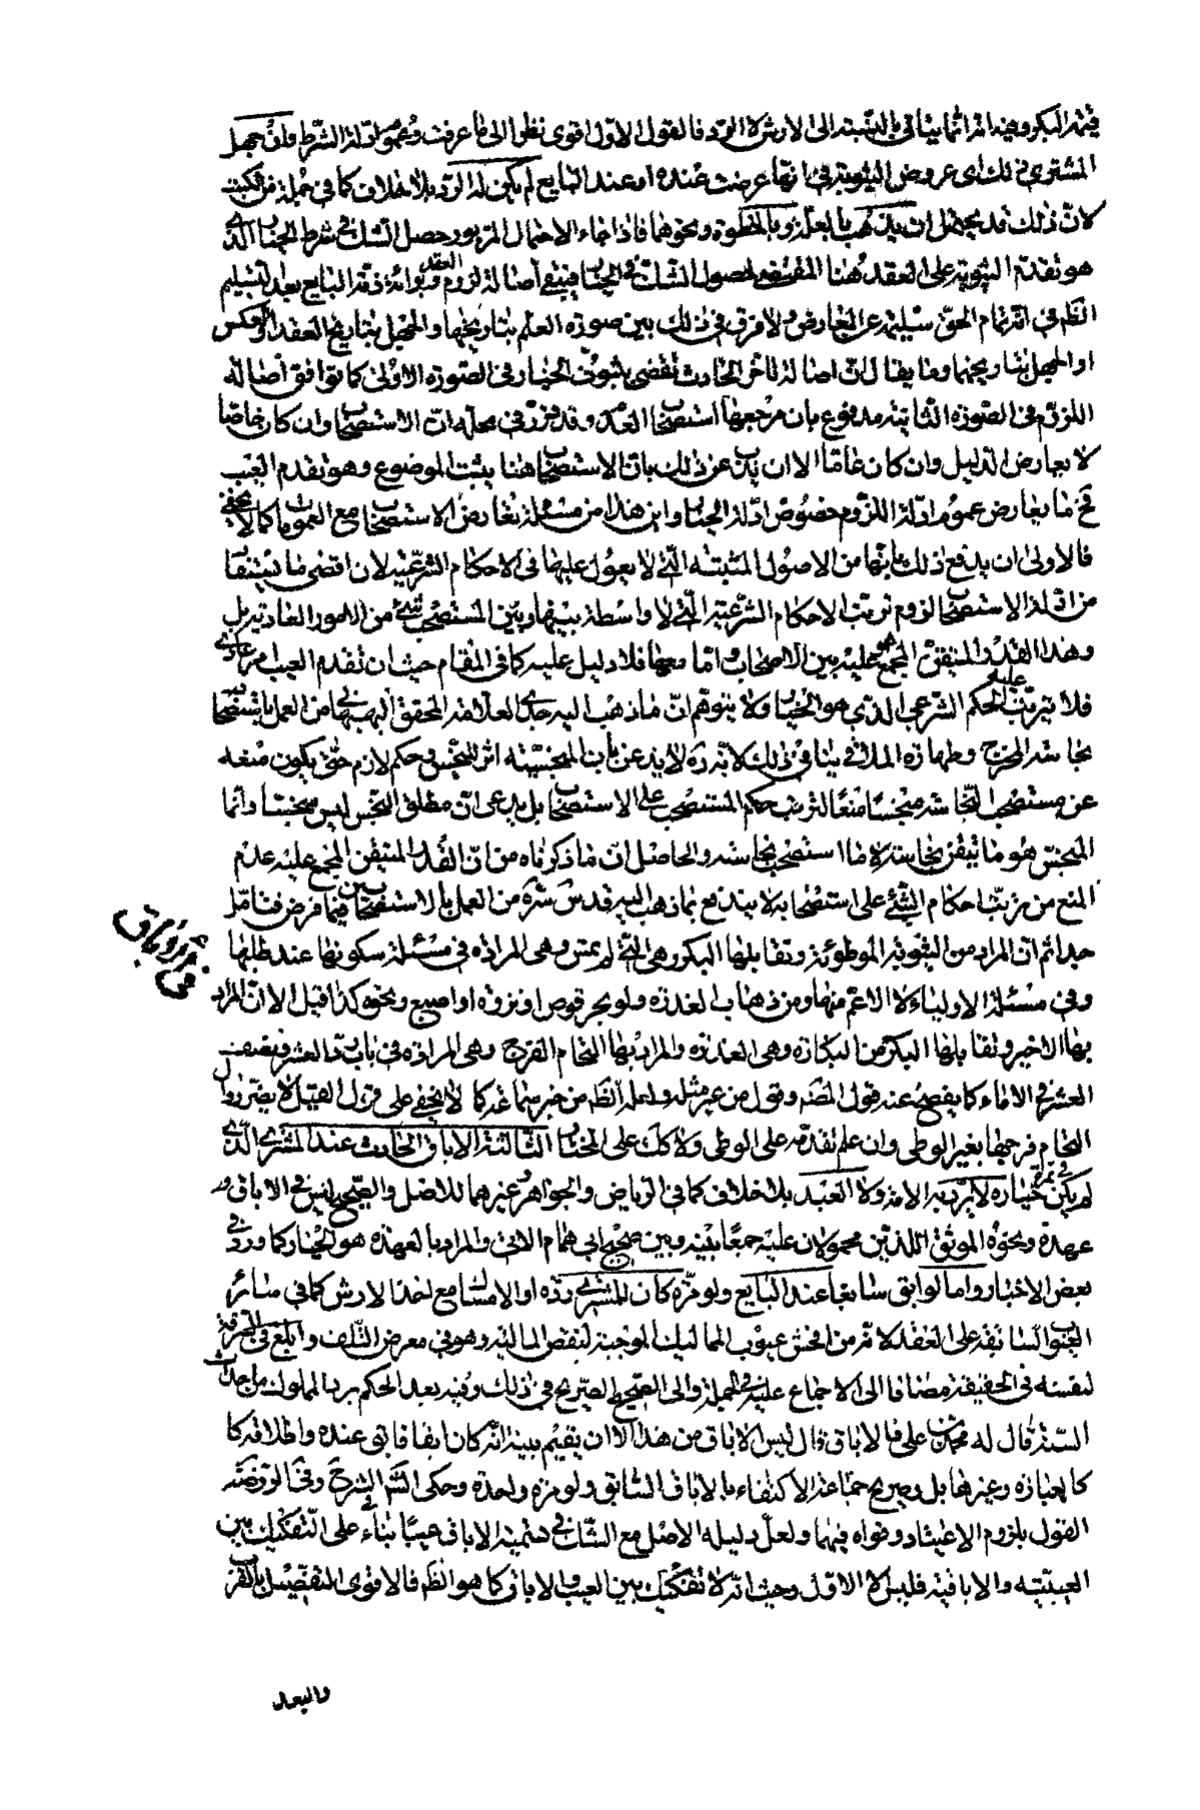 قيمة البكر وفيه انه انما ينافي بالنسبة الى الارش لا الرد فالقول الاول اقوى نظرا الى ما عرفت وعموم ادلة الشرط وان جهل
المشتري ذلك اى عروض الثيوبة في انها عرضت عنده او عند البايع لم يكن له الرد بلا خلاف كما في جملة من كتبه
لان ذلك قد يحتمل ان يذهب بالعلة وبالخطوة ونحوهما فاذا جاء الاحتمال المزبور حصل الشك في شرط الخيار الذي
هو تقدم الثيوبة على العقد هنا المقتضي لحصول الشك في الخيار فيبقى اصالة لزوم العقد وبرائة ذمة البايع بعد تسليم
الظم في انه تمام الحق سليمة عن المعارض ولا فرق في ذلك بين صورة العلم بتاريخها والجهل بتاريخ العقد او العكس
او الجهل بتاريخهما وما يقال ان اصالة تأخر الحادث تقضي بثبوت الخيار في الصورة الاولى كما توافق اصالة
اللزوم في الصورة الثانية مدفوع بان مرجعها استصحاب العدم وقد قرر في محله ان الاستصحاب وان كان خاصا
لا يعارض الدليل وان كان عاما الا ان يذب عن ذلك بان الاستصحاب هنا يثبت الموضوع وهو تقدم العيب
فح ما يعارض عموم ادلة اللزوم خصوص ادلة الخيار واين هذا من مسئلة تعارض الاستصحاب مع العمومات كما لا يخفى
فالاولى ان يدفع ذلك بانها من الاصول المثبتة التي لا يعول عليها في الاحكام الشرعية لان اقصى ما يستفاد
من ادلة الاستصحاب لزوم ترتب الاحكام الشرعية التي لا واسطة بينها وبين المستصحب شئ من الامور العادية بل
وهذا القدر المتيقن المجمع عليه بين الاصحاب واما معها فلا دليل عليه كما في المقام حيث ان تقدم العيب امر عادي
فلا يترتب عليه الحكم الشرعي الذي هو الخيار ولا يتوهم ان ما ذهب اليه جدي العلامة المحقق البهبهاني من العمل باستصحاب
نجاسة المخرج وطهارة الملاقي ينافي ذلك لانه ره لا يدعي بان المنجسيته اثر للنجس وحكم لازم حتى يكون منعه
عن مستصحب النجاسة منجسا منعا لترتب حكم المستصحب على الاستصحاب بل يدعي ان مطلق النجس ليس منجسا وانما
المنجس هو ما تيقن نجاسته لا ما استصحب نجاسته والحاصل ان ما ذكرناه من ان القدر المتيقن المجمع عليه عدم
المنع من ترتب احكام الشئ على استصحابه لا يندفع بما ذهب اليه قدس سره من العمل بالاستصحابين فيما فرض فتأمل
جيدا ثم ان المراد من الثيوبة الموطوئة وتقابلها البكر وهي التي لم تمس وهي المرادة في مسئلة سكوتها عند طلبها
وفي مسئلة الاولياء لا الاعم منها ومن ذهاب العذرة ولو بحرقوص او نزوة او اصبع ونحوه كذا قيل الا ان المراد
بها الاخير وتقابلها البكر من البكارة وهي العذرة والمراد بها التحام الفرج وهي المرادة في باب رد العشر ونصف
العشر في الاماء كما يفصح عنه قول المصنه وقول من عبر مثله ولعله الظم من خبر سماعة كما لا يخفى على
التحام فرجها بغير الوطى وان علم تقدمه على الوطى ولا كلت على المختار الثالثة الاباق الحادث عند المشتري الذي
لم يكن في زمن خياره لا يرد به الامة ولا العبد بلا خلاف كما في الرياض والجواهر وغيرهما للاصل والصحيح ليس في الاباق
عهدة ونحوه الموثق اللذين محمولان عليه جمعا بينه وبين صحيح ابي همام الاتي والمراد بالعهدة هو الخيار كما ورد في
بعض الاخبار واما لو ابق سابقا عند البايع ولو مرة كان للمشتري رده او الامساك مع اخذ الارش كما في سائر
العيوب السابقة على العقد لانه من افحش عيوب المماليك الموجبة لنقص المالية وهو في معرض التلف وابلغ في السرقة
لنفسه في الحقيقة مضافا الى الاجماع عليه في الجملة والى الصحيح الصريح في ذلك وفيه بعد الحكم برد المملوك من احداث
السنة قال له محمد بن علي فالاباق قال ليس الاباق من هذا الا ان يقيم بينة انه كان ابقا قابل عنده واطلاقه كا
كالعبارة وغيرها بل صريح جماعة الاكتفاء بالاباق السابق ولو مرة واحدة وحكى الشم الشرح وفي الروضة
القول بلزوم الاعتياد وقواه فيهما ولعل دليله الاصل مع الشك في تسمية الاباق عيبا بناء على التفكيك بين
العيبية والاباقية فليس الا الاول وحيث انه لا تفكيك بين العيب والاباق كما هو الظم فالاقوى التفصيل بالقرب
والبعد